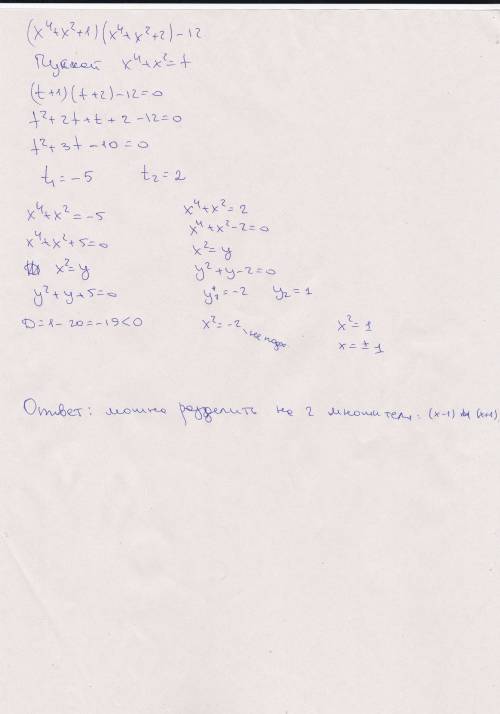 (x⁴+x²+1)(x⁴+x²+2)-12
Пускай x⁴+x²=t
(t+1)(t+2)-12=0
t²+2t+t+2-12=0
t²+3t-10=0
t₁=-5 t₂=2
x⁴+x²=-5
x⁴+x²+5=0
x²=y
y²+y+5=0
D=1-20=-19<0
x⁴+x²=2
x⁴+x²-2=0
x²=y
y²+y-2=0
y₁=-2 y₂=1
x²=-2 не
x²=1
x=±1
Ответ: можно разделить на 2 множителя: (x-1) и (x+1)